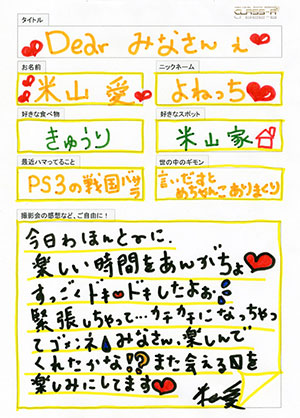 CLASS-A
タイトル
Dear みなさんぇ
お名前
ニックネーム
米山 愛
よねっち
好きな食べ物
好きなスポット
きゅうり
米山家
最近ハマってること
世の中のギモン
PS3の戦国バサラ
言いだすと
めちゃんこおりまくり
撮影会の感想など、ご自由に!
今日わほんとかに、
楽しい時間をあんがちょ
すっごくドキドキしたよぉ
緊張しちゃって…カチカチになっちゃっ
てゴメンネ みなさん、楽しんで
くれたかな!? また会える日を
楽しみにしてます
米山愛